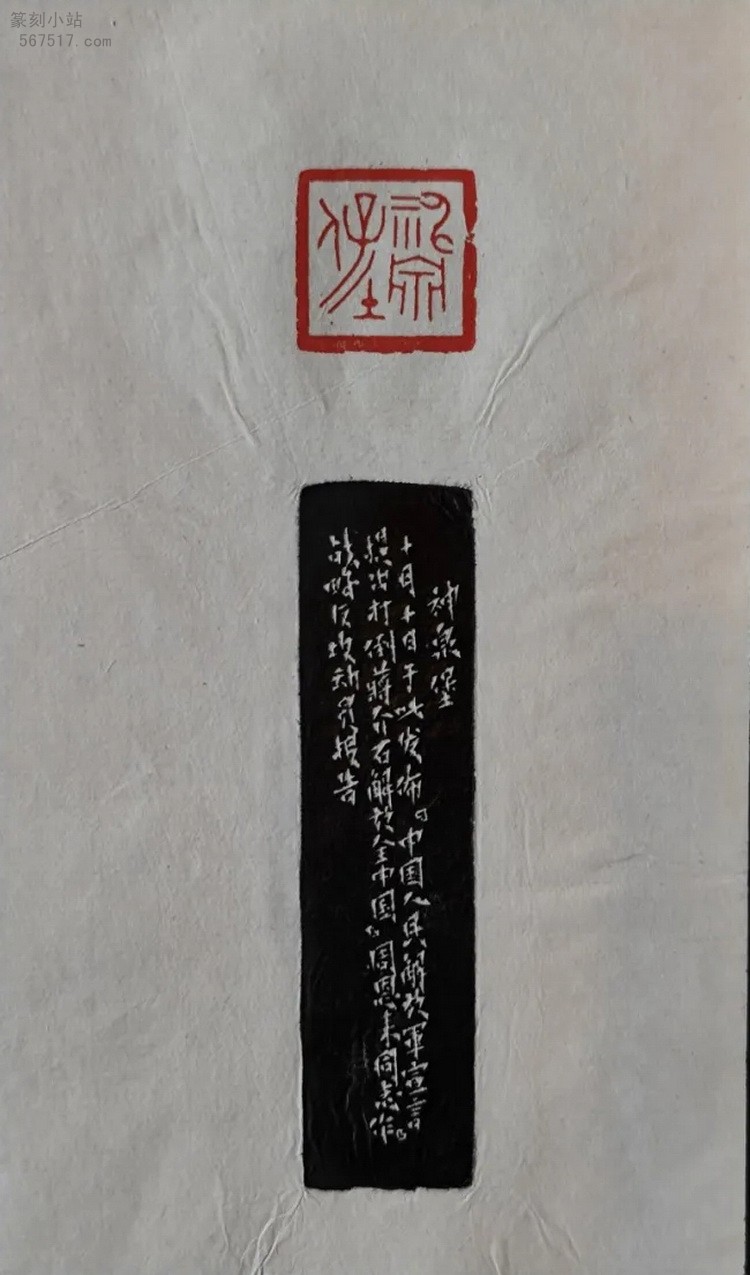 篆刻小站
567517.com
神泉堡
神泉堡
十月十日于此发布《中国人民解放军宣言》
提出打倒蒋介石解放全中国周恩来同志作
战略反攻动员报告